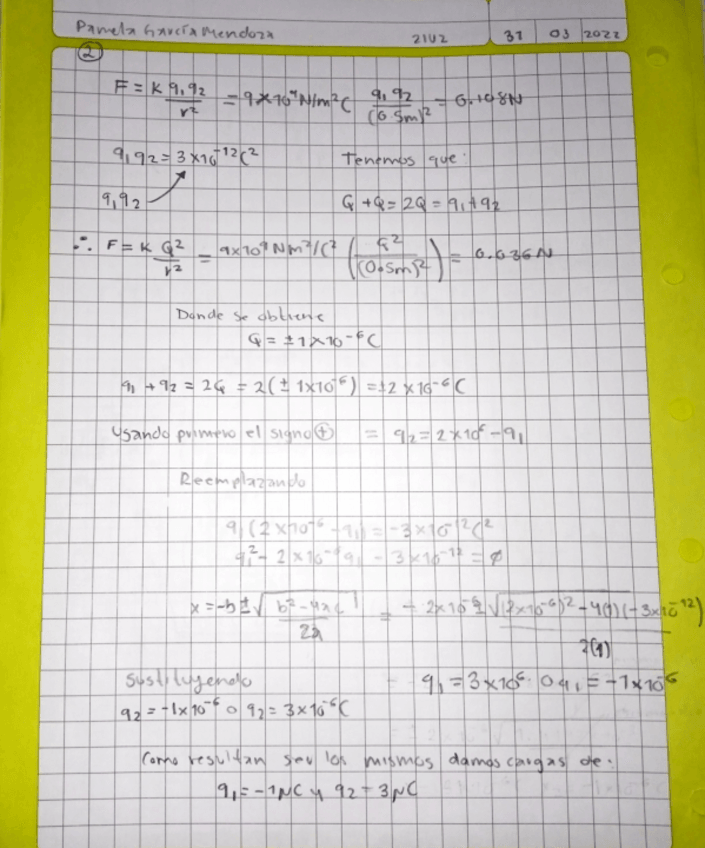 Pamela García Mendoza 21V2 31 03 2022
②
F = K q₁q₂/r² = 9×10⁹ N/m²C q₁q₂/(0.5m)² = 0.108N
q₁q₂ = 3×10⁻¹²C² Tenemos que:
q₁q₂ Q + Q = 2Q = q₁+q₂
∴ F = K Q²/r² = 9x10⁹ Nm²/C² (Q²/(0.5m)²) = 0.036N
Donde se obtiene
Q = ±1x10⁻⁶C
q₁ + q₂ = 2Q = 2(± 1x10⁻⁶) = ±2 x10⁻⁶C
Usando primero el signo ⊕ = q₂ = 2x10⁶ - q₁
Reemplazando
q₁(2x10⁻⁶ - q₁) = -3x10⁻¹²C²
q₁² - 2x10⁻⁶q₁ - 3x10⁻¹² = 0
x = -b ± √b²-4ac/2a = + 2x10⁻⁶ ± √(2x10⁻⁶)² - 4(1)(-3x10⁻¹²)/2(1)
Sustituyendo q₁ = 3x10⁶ o q₁ = -1x10⁶
q₂ = -1x10⁻⁶ o q₂ = 3x10⁻⁶C
Como resultan ser los mismos damos cargas de:
q₁ = -1μC y q₂ = 3μC